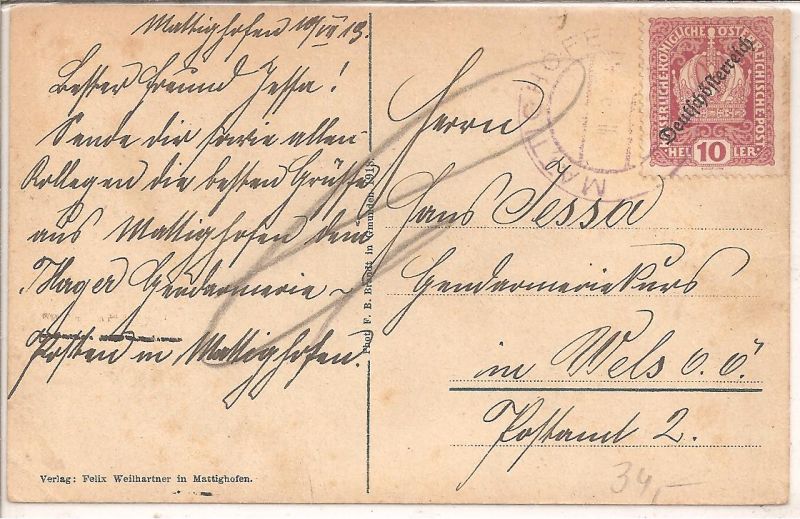 Mattighofen 19/IV 19.
Bester Freund Jessa!
Sende dir sowie allen
Kollegen die besten Grüße
aus Mattighofen dem
Gendarmerie-
Posten in Mattighofen.
Verlag: Felix Weilhartner in Mattighofen.
Phot. F. E. Brandt in Gmunden. 1918.
MATTIGHOFEN
KAISERLICHE KÖNIGLICHE ÖSTERREICHISCHE POST
Deutschösterreich
HELLER
10
Herrn
Hans Jessa
Gendarmeriekurs
in Wels O.Ö.
Postamt 2.
34,-